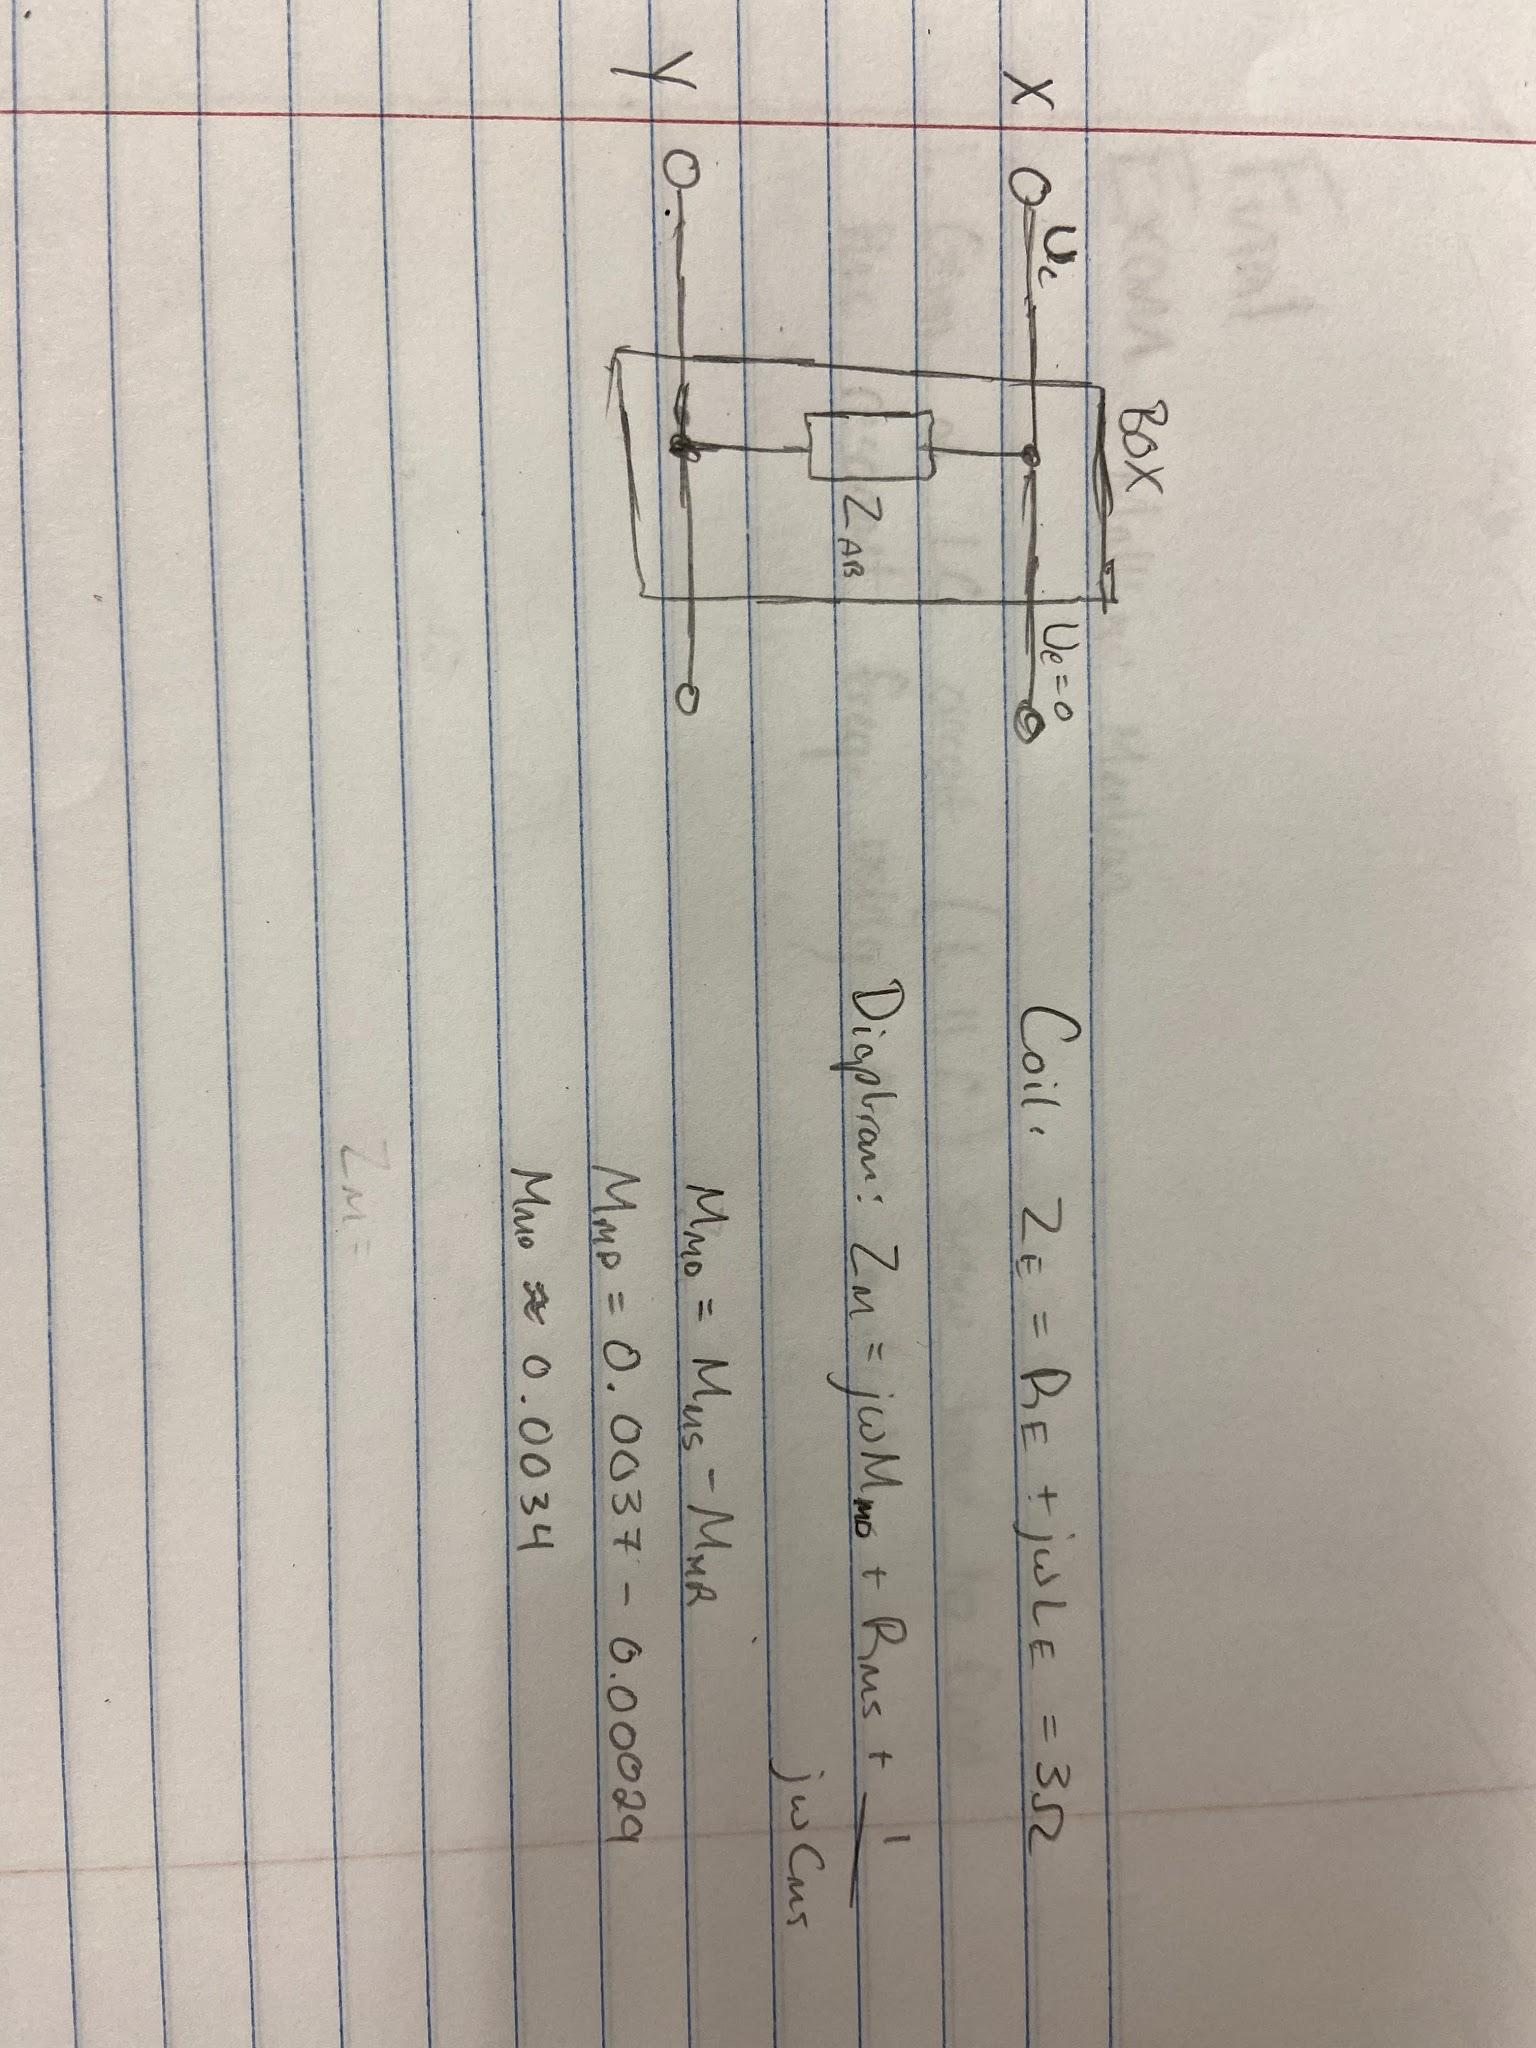 BOX
X
Uc
Ue=0
ZAB
Y
Coil. ZE = RE + jωLE = 3Ω
Diaphram: ZM = jωMMD + RMS + 1
jωCMS
MMD = MMS - MMR
MMD = 0.0037 - 0.00029
MMD ≈ 0.0034
ZM =